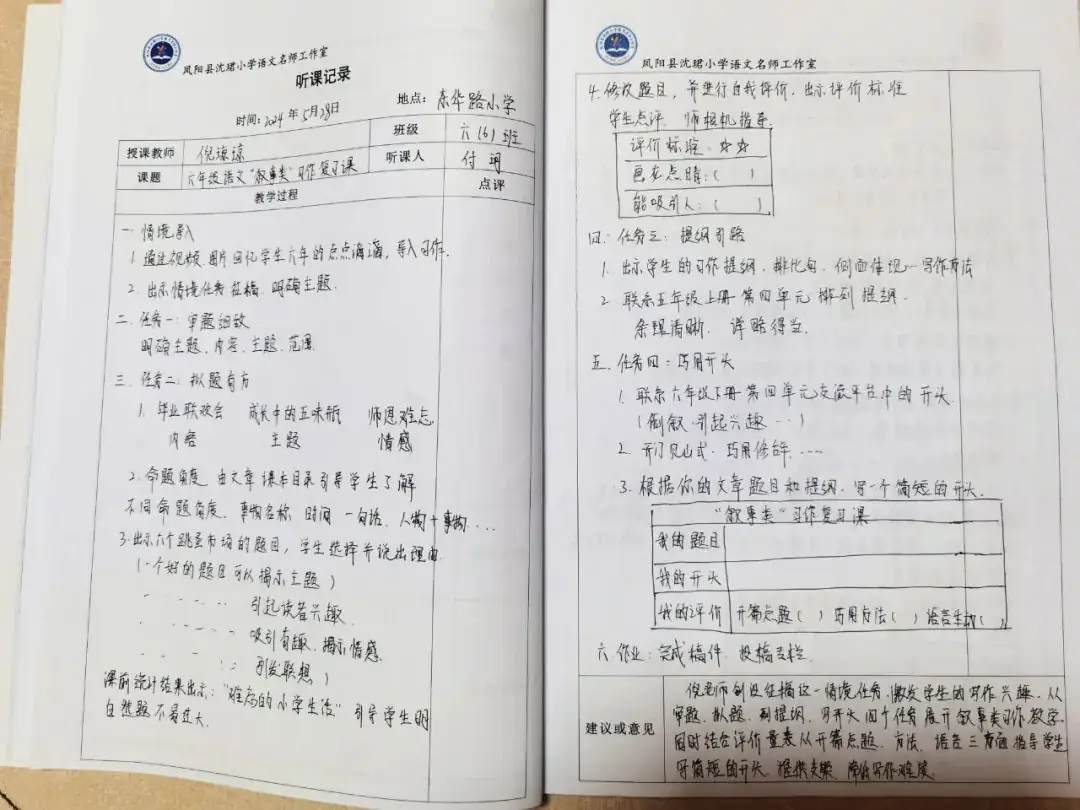 凤阳县沈珺小学语文名师工作室
听课记录
时间：2024年5月28日 地点：东华路小学
授课教师 倪谅谅 班级 六（6）班
课题 六年级语文“叙事类”习作复习课 听课人 付珂
教学过程 点评
一 情境导入
1. 通过视频、图片回忆学生六年的点点滴滴，导入习作。
2. 出示情境任务征稿，明确主题。
二. 任务一：审题细致
明确主题、内容、主题、范围.
三. 任务二：拟题有方
1. 毕业联欢会 成长中的五味瓶 师恩难忘
内容 主题 情感
2. 命题角度 由文章课本目录引导学生了解
不同命题角度，事物名称 时间 一句话，人物+事物....
3. 出示六个跳蚤市场的题目，学生选择并说出理由
（一个好的题目可以揭示主题）
引起读者兴趣
吸引有趣、揭示情感
引发联想）
课前统计结果出示：“难忘的小学生活” 引导学生明
白 题不易过大.
凤阳县沈珺小学语文名师工作室
4. 修改题目，并进行自我评价，出示评价标准
学生点评 师相机指导.
评价标准：☆☆
画龙点睛：（ ）
能吸引人：（ ）
四. 任务三：提纲引路
1. 出示学生的习作提纲，排比句，侧面体现…写作方法
2. 联系五年级上册第四单元 排列提纲.
条理清晰. 详略得当.
五. 任务四：巧用开头
1. 联系六年级下册第四单元交流平台中的开头
（倒叙 引起兴趣…）
2. 开门见山式. 巧用修辞.....
3. 根据你的文章题目和提纲，写一个简短的开头.
“叙事类”习作复习课
我的题目
我的开头
我的评价 开篇点题（ ） 巧用方法（ ） 语言生动（ ）
六 作业：完成稿件 投稿专栏.
建议或意见
倪老师创设征稿这一情境任务，激发学生的写作兴趣，从
审题、拟题、列提纲、写开头四个任务展开叙事类习作教学.
同时结合评价量表从开篇点题、方法、语言三方面指导学生
写简短的开头，提供支架，降低写作难度.